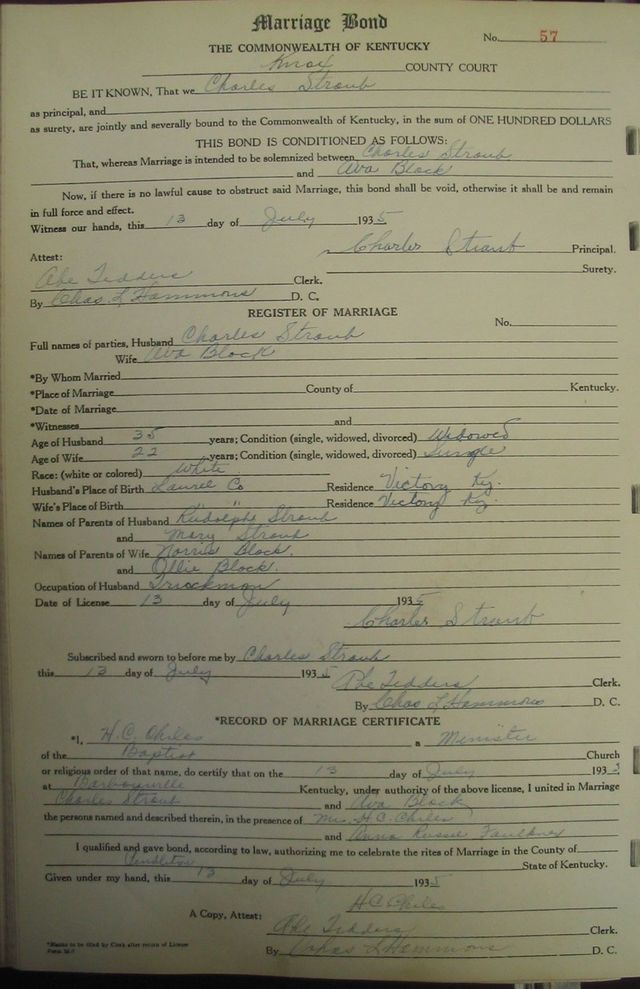 Marriage Bond
No. 57
THE COMMONWEALTH OF KENTUCKY
Knox COUNTY COURT
BE IT KNOWN, That we Charles Straub
as principal, and
as surety, are jointly and severally bound to the Commonwealth of Kentucky, in the sum of ONE HUNDRED DOLLARS
THIS BOND IS CONDITIONED AS FOLLOWS:
That, whereas Marriage is intended to be solemnized between Charles Straub
and Ava Block
Now, if there is no lawful cause to obstruct said Marriage, this bond shall be void, otherwise it shall be and remain
in full force and effect.
Witness our hands, this 13 day of July 1935
Charles Straub Principal.
Attest: Surety.
Abe Tedders Clerk.
By Chas. L Hammons D. C.
REGISTER OF MARRIAGE
No.
Full names of parties, Husband Charles Straub
Wife Ava Block
*By Whom Married
*Place of Marriage County of Kentucky.
*Date of Marriage
*Witnesses and
Age of Husband 35 years; Condition (single, widowed, divorced) Widowed
Age of Wife 22 years; Condition (single, widowed, divorced) Single
Race: (white or colored) White
Husband's Place of Birth Laurel Co Residence Victory Ky.
Wife's Place of Birth " " Residence Victory Ky.
Names of Parents of Husband Rudolph Straub
and Mary Straub
Names of Parents of Wife Norris Block.
and Ollie Block.
Occupation of Husband Truckman
Date of License 13 day of July 1935
Charles Straub
Subscribed and sworn to before me by Charles Straub
this 13 day of July 1935
Abe Tedders Clerk.
By Chas L Hammons D. C.
*RECORD OF MARRIAGE CERTIFICATE
*I, H.C. Chiles a Minister
of the Baptist Church
or religious order of that name, do certify that on the 13 day of July 193
at Barbourville Kentucky, under authority of the above license, I united in Marriage
Charles Straub and Ava Block
the persons named and described therein, in the presence of Mrs. H.C. Chiles
and Anna Faulkner
I qualified and gave bond, according to law, authorizing me to celebrate the rites of Marriage in the County of
Pendleton State of Kentucky.
Given under my hand, this 13 day of July 1935
H C Chiles
A Copy, Attest: Abe Tedders Clerk.
By Chas L Hammons D. C.
*Blanks to be filled by Clerk after return of License